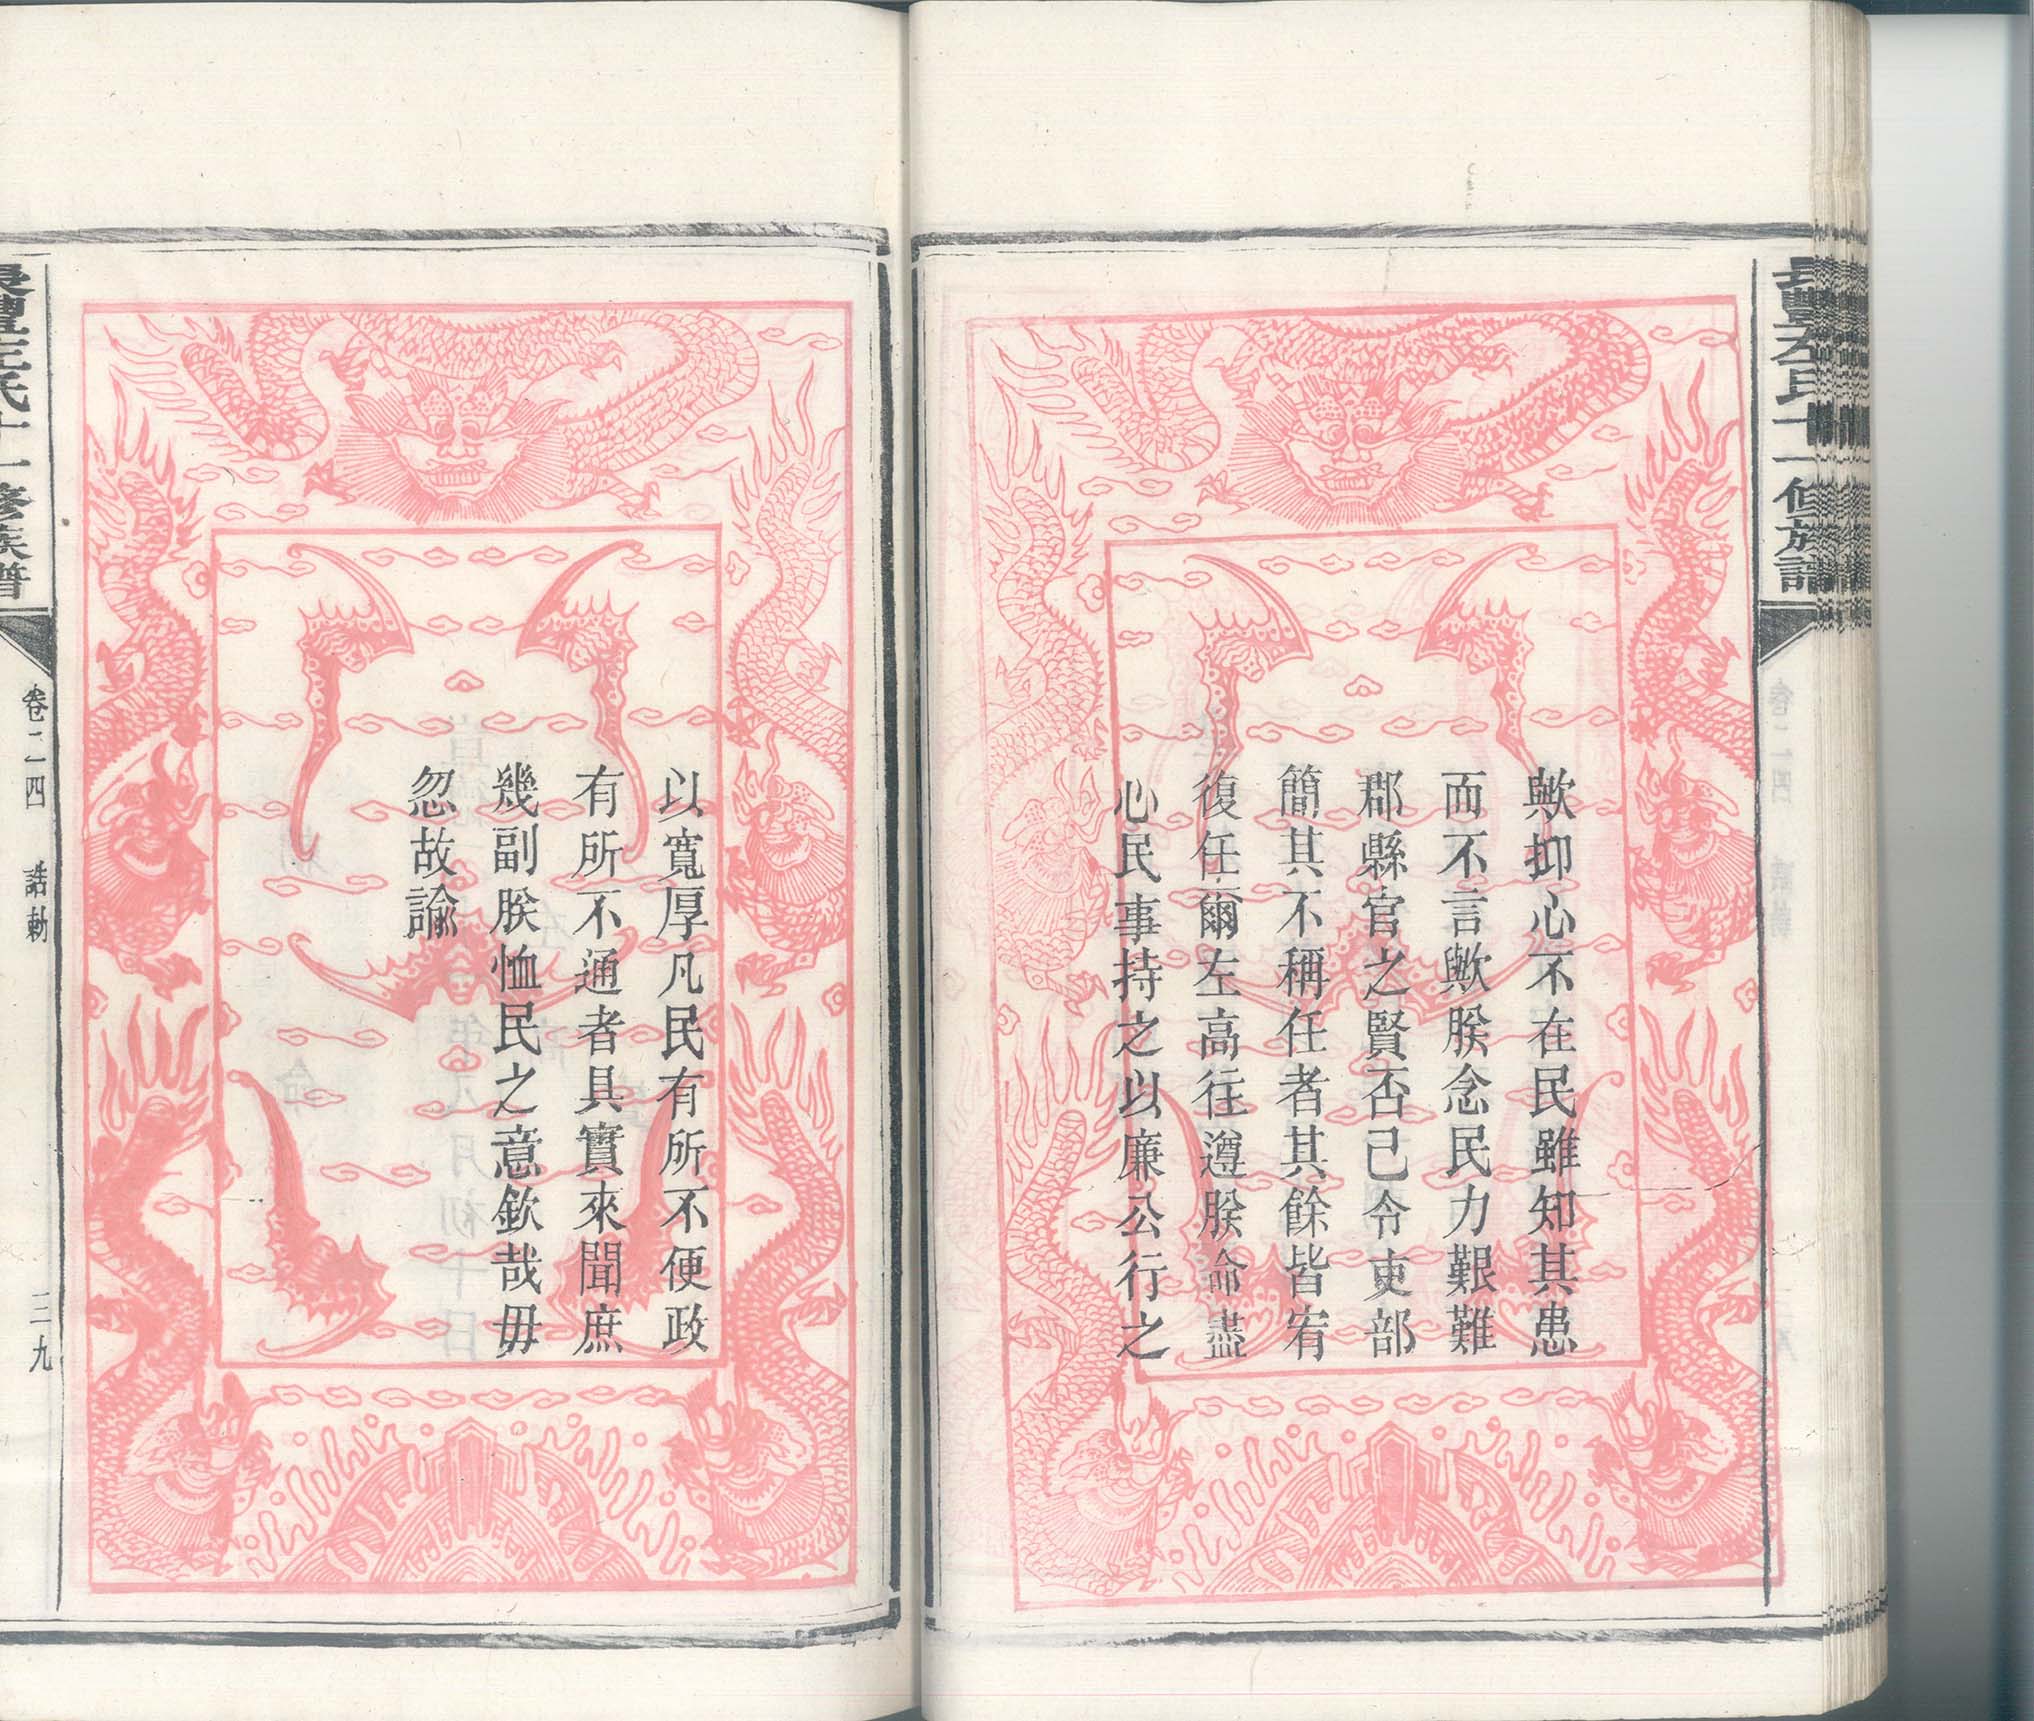 長豐左氏十一修族譜
歟抑心不在民雖知其患
而不言歟朕念民力艱難
郡縣官之賢否已令吏部
簡其不稱任者其餘皆宥
復任爾左高往遵朕命盡
心民事持之以廉公行之
以寬厚凡民有所不便政
有所不通者具實來聞庶
幾副朕恤民之意欽哉毋
忽故諭
長豐左氏十一修族譜
卷二四 誥勅
三九